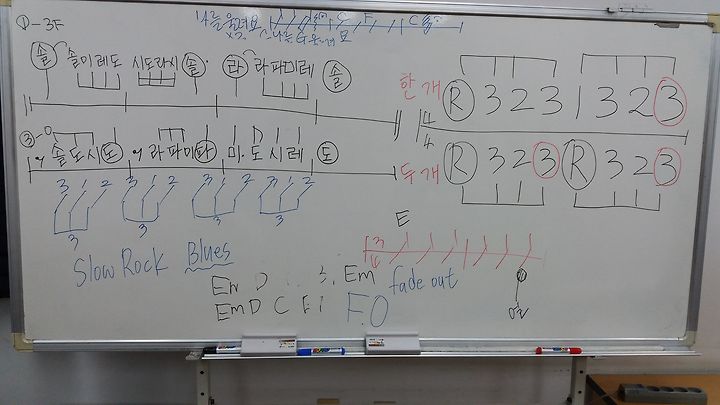 ①-3F
나를 울려요
x2
F
C
솔 솔미레도 시도라시 솔. 라 라파미레 솔
한개 R 3 2 3 1 3 2 3
4/4
③-
솔도시도 라파미파 미.도시레 도
두개 R 3 2 3 R 3 2 3
3 1 2 3 1 2 3 1 2 3 1 2
3 3 3 3
E
Slow Rock Blues
Em D 3. Em fade out
Em D C E F.O